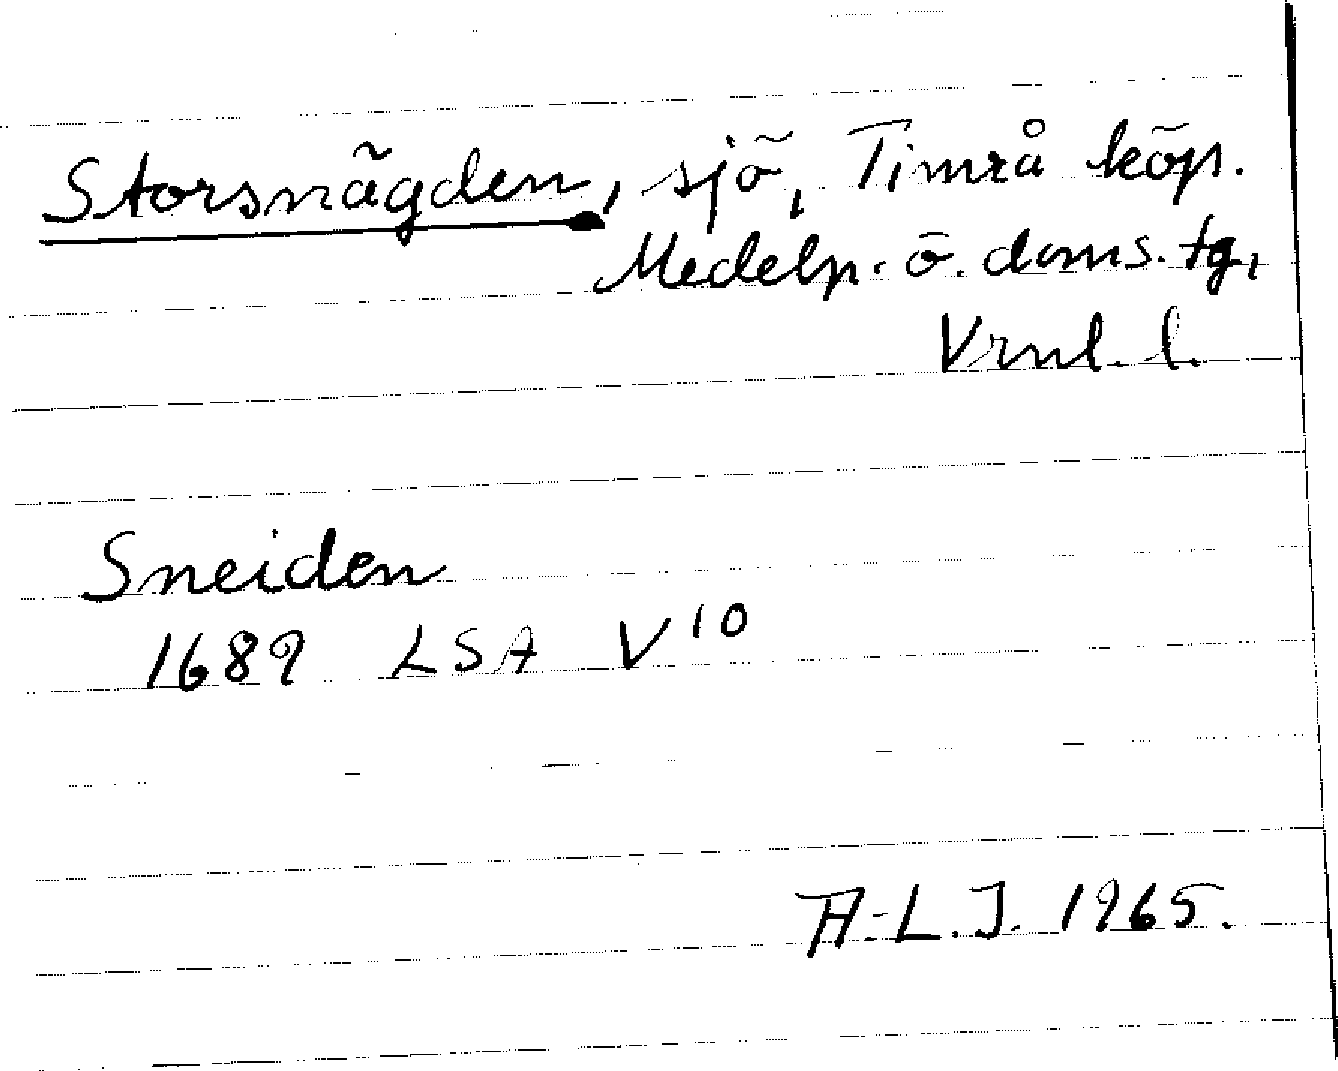 Storsnägden, sjö, Timrå köp.
Medelp. ö. doms. tg,
Vrnl. l.
Sneiden
1689 LSA V10
A-L.J. 1965.